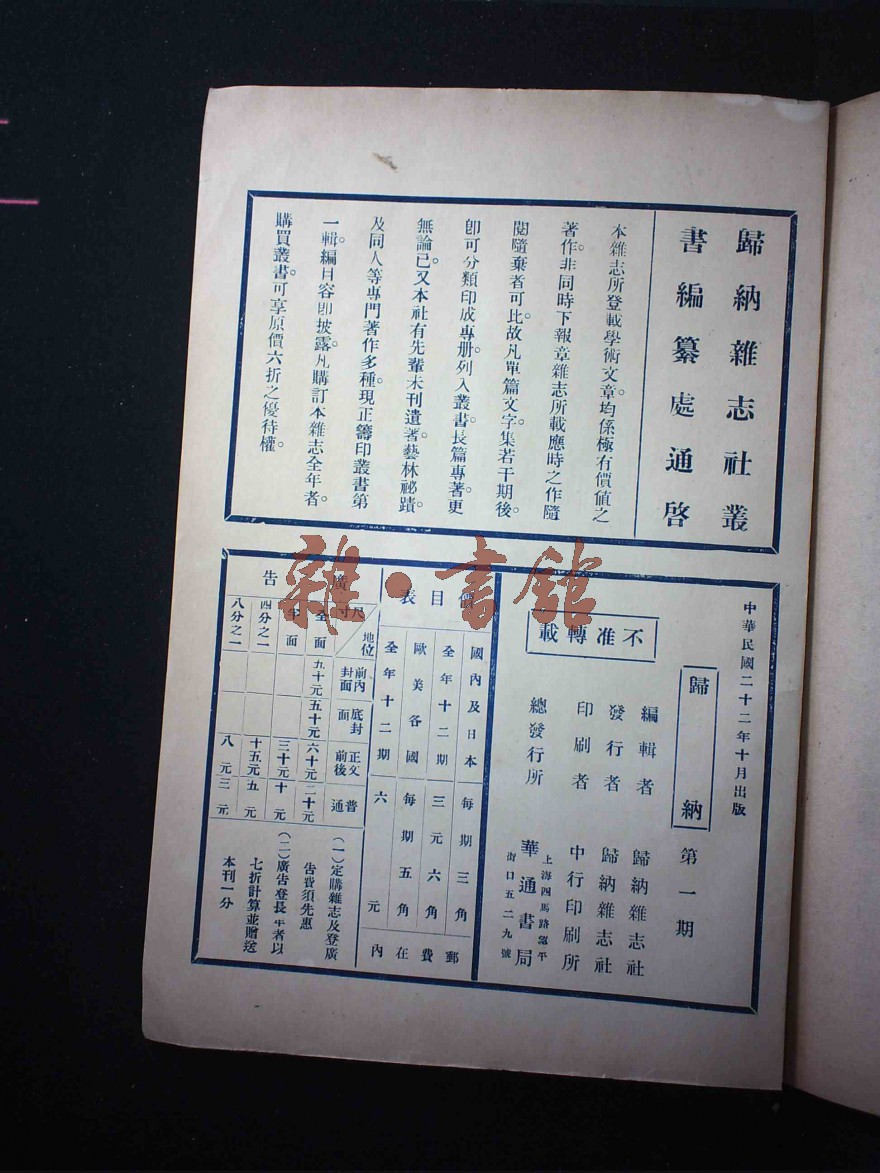 歸納雜志社叢
書編纂處通啓
本雜志所登載學術文章。均係極有價值之
著作。非同時下報章雜志所載應時之作隨
閱隨棄者可比。故凡單篇文字。集若干期後。
卽可分類印成專册。列入叢書。長篇專著。更
無論已。又本社有先輩未刊遺著。藝林祕蹟。
及同人等專門著作多種。現正籌印叢書第
一輯。編目容卽披露。凡購訂本雜志全年者。
購買叢書。可享原價六折之優待權。
中華民國二十二年十月出版
歸納
第一期
編輯者 歸納雜志社
發行者 歸納雜志社
印刷者 中行印刷所
總發行所 華通書局
上海四馬路望平
街口五二九號
不准轉載
價目表
國內及日本 每期三角
全年十二期 三元六角
歐美各國 每期五角
全年十二期 六元
郵費在內
廣告
尺寸 地位 前內封面 底封面 正文前後 普通
全面 九十元 五十元 六十元 二十元
半面 三十元 十元
四分之一 十五元 五元
八分之一 八元 三元
(一)定購雜志及登廣
告費須先惠
(二)廣告登長年者以
七折計算並贈送
本刊一分
雜·書館